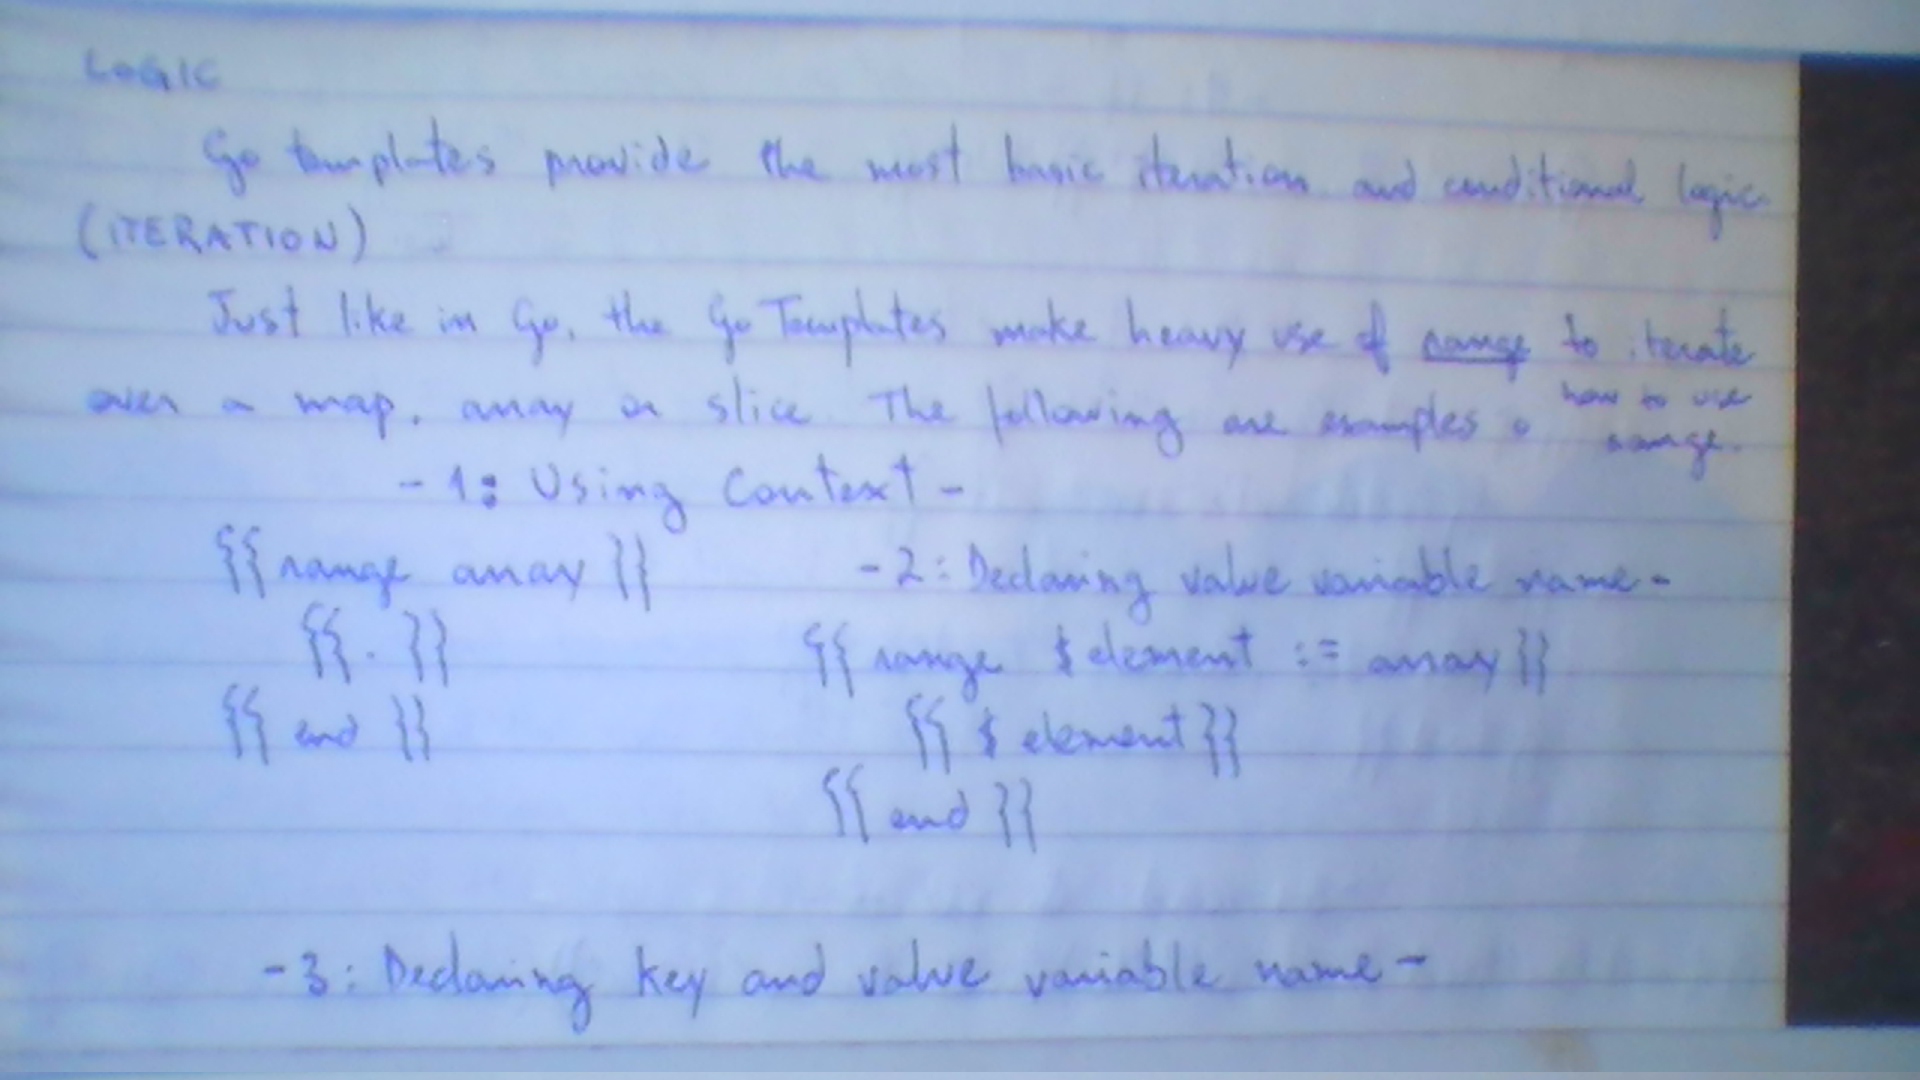 LOGIC
Go templates provide the most basic iteration and conditional logic.
(ITERATION)
Just like in Go, the Go Templates make heavy use of range to iterate
over a map, array or slice. The following are examples o how to use
range.
-1: Using Context-
{{ range array }}
{{ . }}
{{ end }}
-2: Declaring value variable name-
{{ range $element := array }}
{{ $element }}
{{ end }}
-3: Declaring key and value variable name-